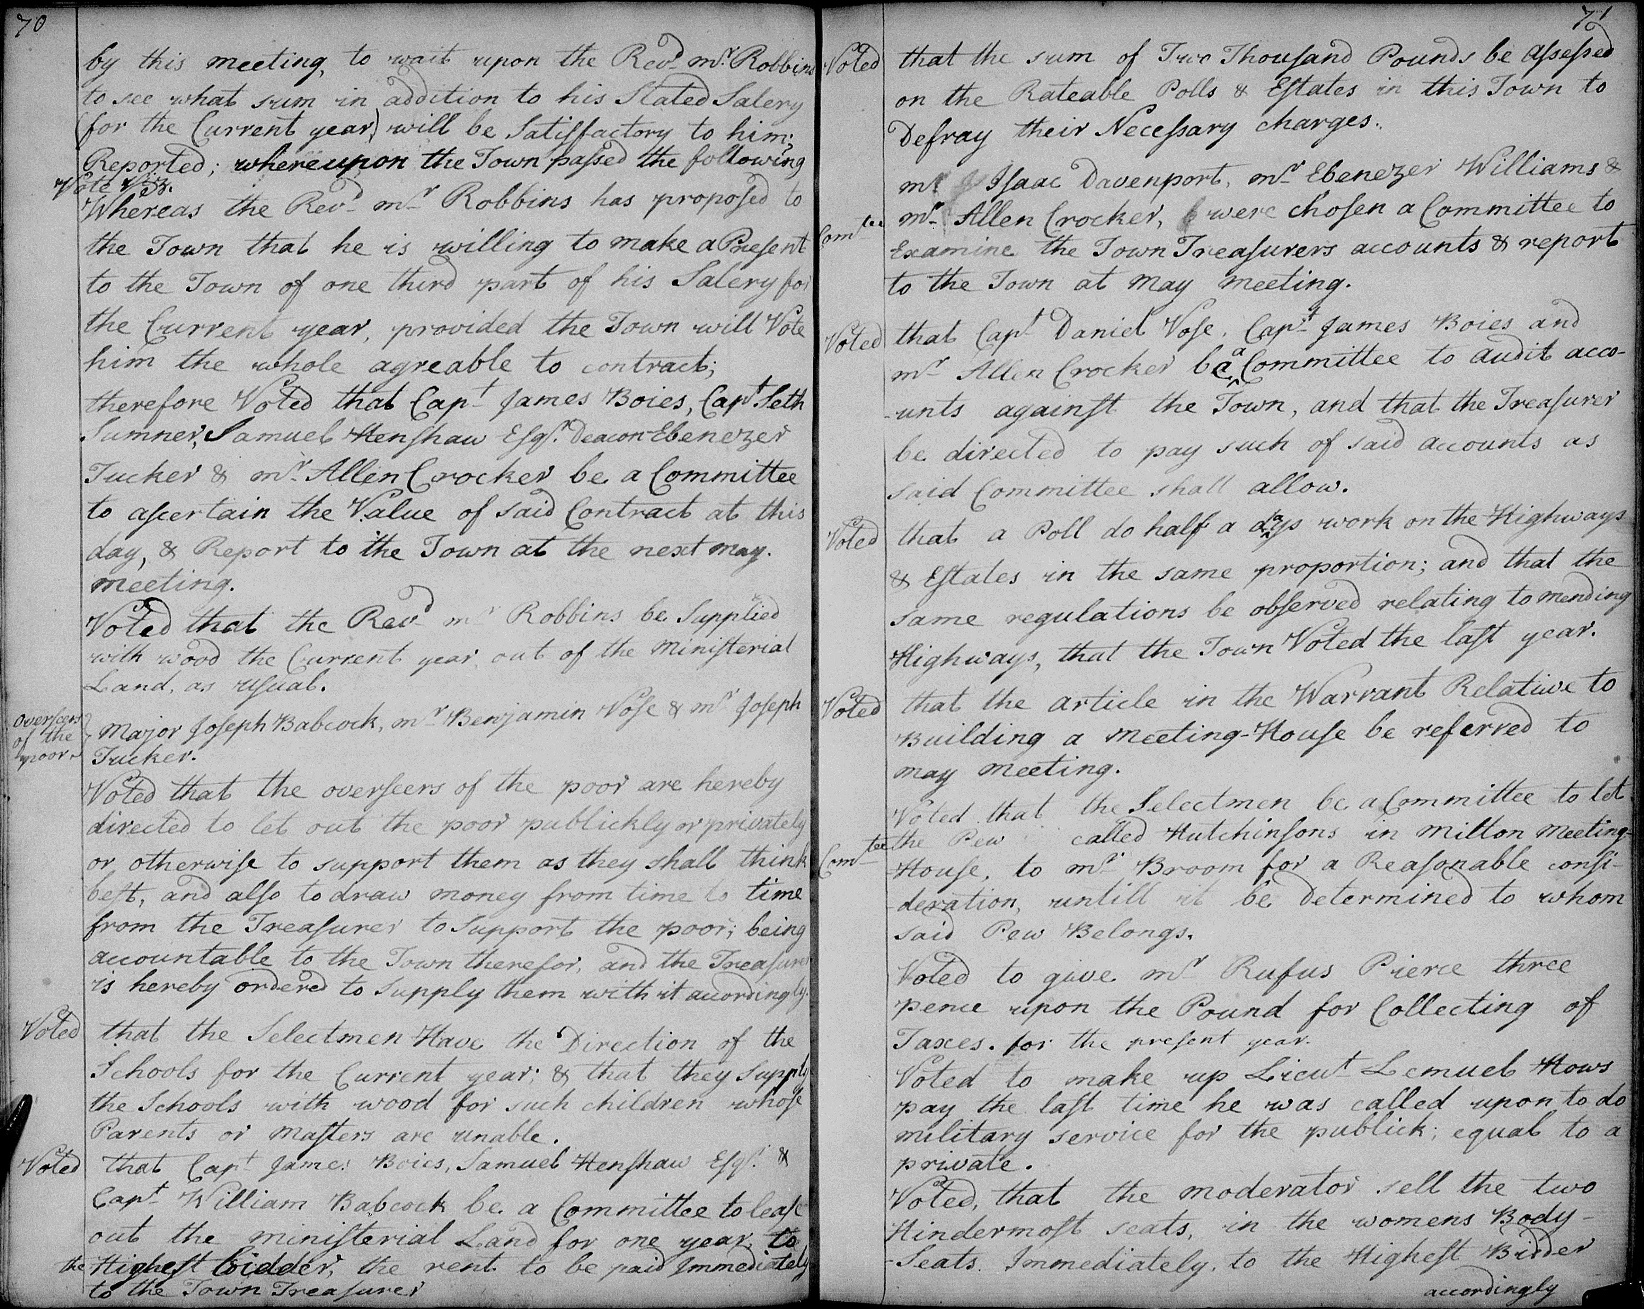 70
by this meeting, to wait upon the Revd. mr. Robbins
to see what sum in addition to his Stated Salery
(for the Current year) will be Satisfactory to him;
Reported; whereupon the Town passed the following
Vote viz.
Whereas the Revd. mr. Robbins has proposed to
the Town that he is willing to make a Present
to the Town of one third part of his Salery for
the Current year, provided the Town will Vote
him the whole agreable to contract;
therefore Voted that Capt. James Boies, Capt. Seth
Sumner, Samuel Henshaw Esqr. Deacon Ebenezer
Tucker & mr. Allen Crocker be a Committee
to ascertain the Value of said Contract at this
day, & Report to the Town at the next may.
meeting.
Voted that the Revd. mr. Robbins be Supplied
with wood the Current year, out of the Ministerial
Land, as usual.
Overseers of the poor
Major Joseph Babcock, mr. Benjamin Vose & mr. Joseph
Tucker.
Voted that the overseers of the poor are hereby
directed to let out the poor publickly or privately
or otherwise to support them as they shall think
best, and also to draw money from time to time
from the Treasurer to Support the poor; being
accountable to the Town therefor, and the Treasurer
is hereby ordered to Supply them with it acordingly.
Voted that the Selectmen Have the Direction of the
Schools for the Current year; & that they Supply
the Schools with wood for such children whose
Parents or Masters are unable.
Voted that Capt. James Boies, Samuel Henshaw Esqr. &
Capt. William Babcock be a Committee to lease
out the ministerial Land for one year, to
the Highest bidder, the rent to be paid Immediately
to the Town Treasurer
71
Voted that the sum of Two Thousand Pounds be Assessed
on the Rateable Polls & Estates in this Town to
Defray their Necessary charges.
mr. Isaac Davenport, mr. Ebenezer Williams &
Comtee mr. Allen Crocker, were chosen a Committee to
Examine the Town Treasurers accounts & report
to the Town at may meeting.
Voted that Capt. Daniel Vose, Capt. James Boies and
mr. Allen Crocker be a Committee to audit acco-
-unts against the Town, and that the Treasurer
be directed to pay such of said accounts as
said Committee shall allow.
Voted that a Poll do half a days work on the Highways
& Estates in the same proportion; and that the
same regulations be observed relating to mending
Highways, that the Town Voted the last year.
Voted that the article in the Warrant Relative to
Building a Meeting-House be referred to
may meeting.
Voted that the Selectmen be a Committee to let
Comtee the Pew called Hutchinsons in Milton Meeting-
-House, to mr. Broom for a Reasonable consi-
-deration, untill it be Determined to whom
said Pew Belongs.
Voted to give mr. Rufus Pierce three
pence upon the Pound for Collecting of
Taxes. for the present year.
Voted to make up Lieut. Lemuel Hows
pay the last time he was called upon to do
military service for the publick; equal to a
private.
Voted, that the moderator sell the two
Hindermost seats, in the womens Body-
-Seats. Immediately, to the Highest Bidder
accordingly